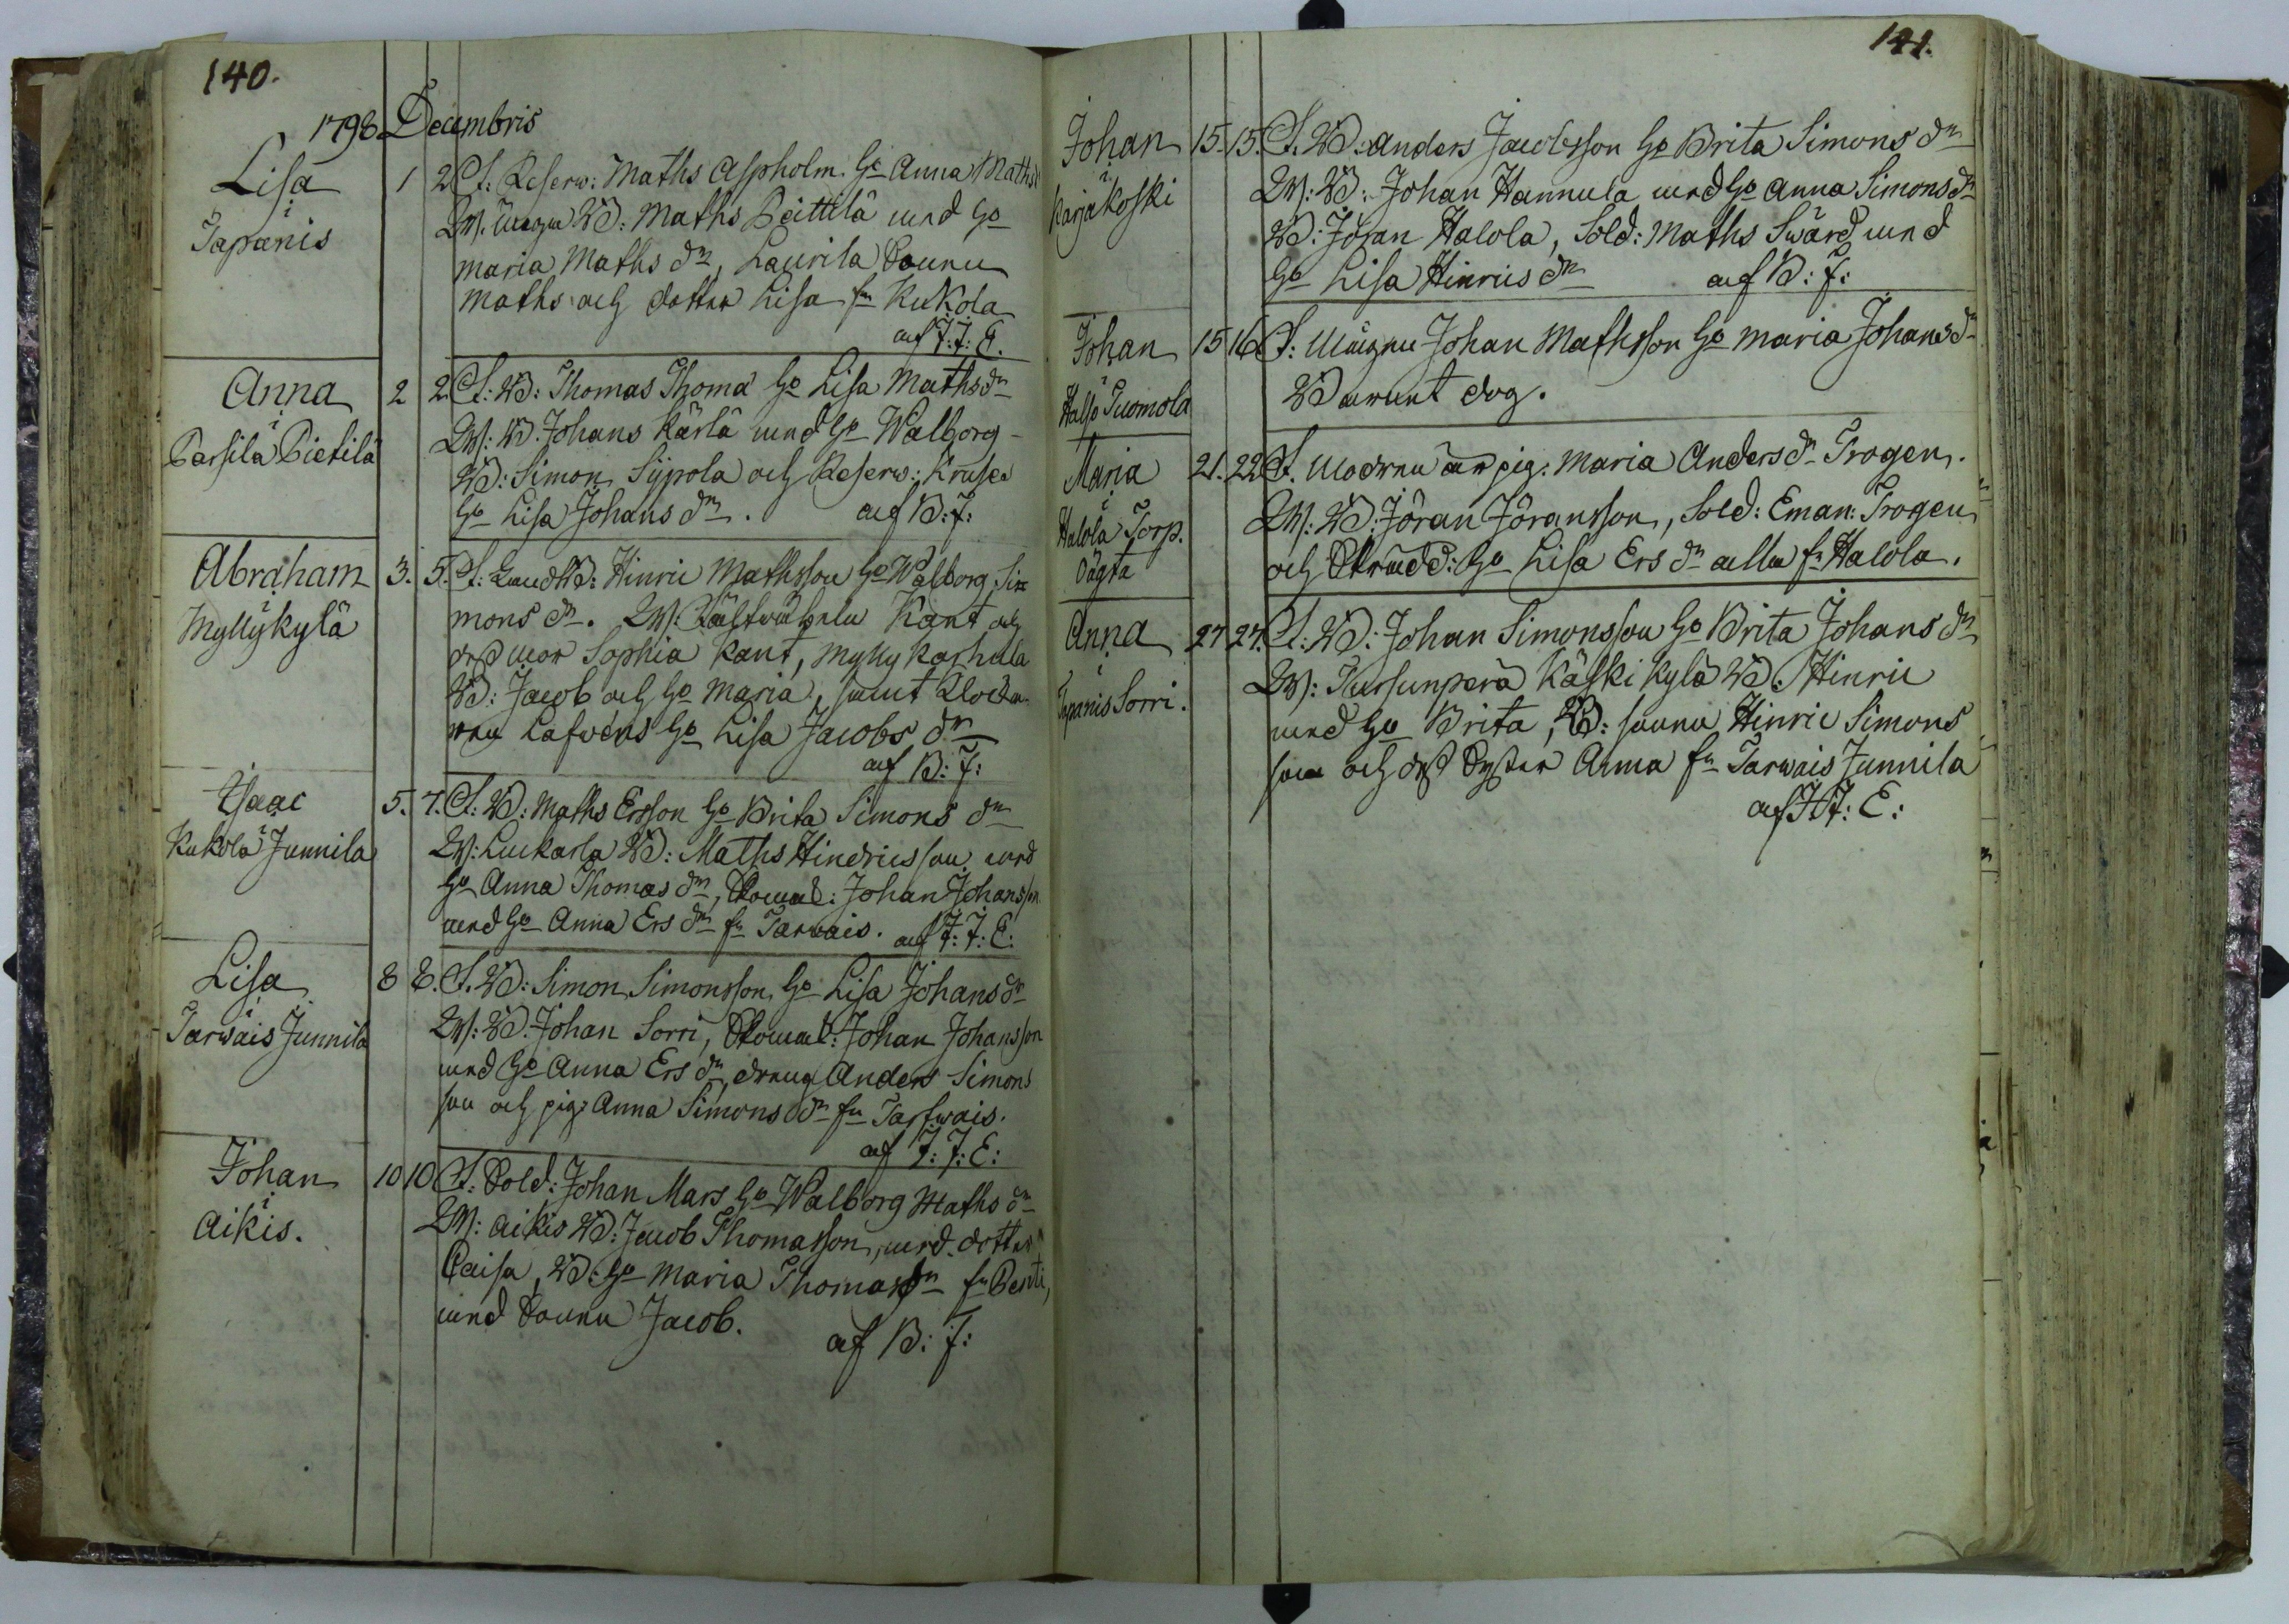 140.
1798 Decembris
Lisa
i
Tapanis
1 2 F: Reserv: Maths Aspholm. Ho Anna Maths
W: unga B: Maths Peittilä med Ho
Maria Maths dr, Laurila Sonen
Maths och dotter Lisa fr Kukola
af J: J: E.
Anna
i
Parsila Pietilä
2 2. F: B: Thomas Thoma Ho Lisa Maths dr
W: B. Johans Kärlä med Ho Walborg
B: Simon Sypola och Reserv: Kruse
Ho Lisa Johans dr. af B: F:
Abraham
i
Myllykylä
3. 5. F: LandtB: Hinric Mathsson Ho Walborg Si=
mons dr. W: Kant och
dess mor Sophia Kant, Mylly Karhula
B: Jacob och Ho Maria, samt Klocka
ren Lafvéns Ho Lisa Jacobs dr
af B: F:
Isaac
i
Kukola Junnila
5. 7. F: B: Maths Ersson Ho Brita Simons dr
W: Luukarla B: Maths Hindricsson med
Ho Anna Thomas dr, Skomak: Johan Johansson
med Ho Anna Ers dr fr Tarvais. af J: J: E:
Lisa
i
Tarvais Junnila
8 8. F. B: Simon Simonsson Ho Lisa Johans dr
W: B. Johan Sorri, Skomak: Johan Johansson
med Ho Anna Ers dr, dreng Anders Simons
son och pig: Anna Simons dr fr Tarfwais.
af J: J: E:
Johan
i
Aikis.
10 10 F: Sold: Johan Mars Ho Walborg Maths dr
W: Aikis B: Jacob Thomasson, med dotter
Caisa, B: Ho Maria Thomas dr fr Pertti,
med Sonen Jacob.
af B: F:
141.
Johan
i
Karjakoski
15. 15. F. B: Anders Jacobsson Ho Brita Simons dr
W: B: Johan Hannula med Ho Anna Simons dr
B: Jöran Halola, Sold: Maths Swärd med
Ho Lisa Hinrics dr af B: F:
Johan
i
Halso Tuomola
15 16 F: Mågen Johan Mathsson Ho Maria Johans dr
Barnet dog.
Maria
i
Halola Torp.
Oägta
21. 22 F. Modren är pig. Maria Anders dr Trogen.
W: B: Jöran Jöransson, Sold: Eman: Trogen
och Skrädd: Ho Lisa Ers dr alla fr Halola.
Anna
i
Tapanis Sorri.
27 27. F: B: Johan Simonsson Ho Brita Johans dr
W: Tursunperä Käski Kylä B: Hinric
med Ho Brita, B: sonen Hinric Simons
son och dess Syster Anna fr Tarwais Junnila
af J: J: E: